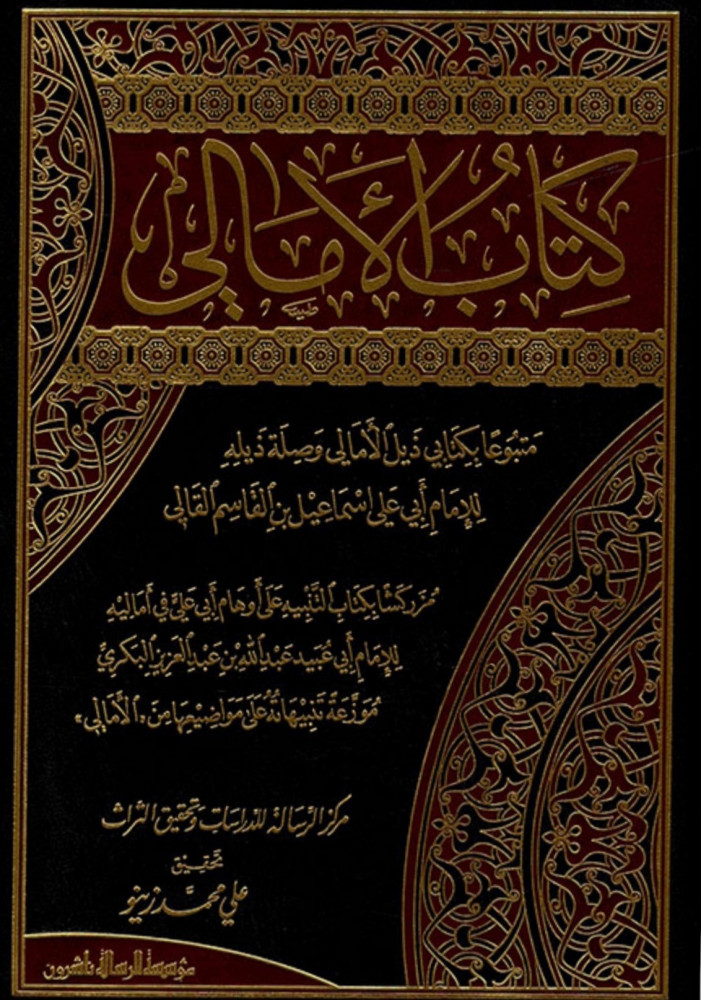 كِتَابُ الأَمَالِي
مَتبُوعًا بِكِتَابَي ذَيلِ الأَمَالِي وَصِلَة ذَيلِهِ
لِلإِمَامِ أَبِي عَلِي اسْمَاعِيْل بنِ القَاسِم القَالِي
مُزَركَشًا بِكِتَابِ التَّنْبِيهِ عَلَى أَوهَام أَبِي عَلِيٍّ فِي أَمَالِيْهِ
لِلإِمَامِ أَبِي عُبَيد عَبْدِ اللهِ بْنِ عَبْدِ العَزِيزِ البَكرِيِّ
مُوَزَّعَةً تَنْبِيهَاتُهُ عَلَى مَوَاضِيْعِهَا مِنَ «الأَمَالِي»
مركز الرسالة للدراسات وتحقيق التراث
تحقيق
علي محمد زينو
مؤسسة الرسالة ناشرون